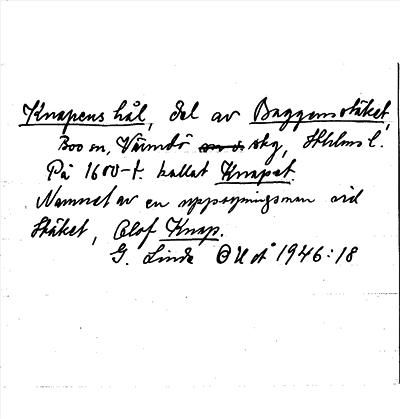 Knapens hål, del av Baggensstäket,
Boo sn, Värmdö skg, Sthlms l.
På 1600-t. kallat Knapet.
Namnet av en uppsyningsman vid
Stäket, Olof Knap.
G. Linde ÖUÅ 1946:18